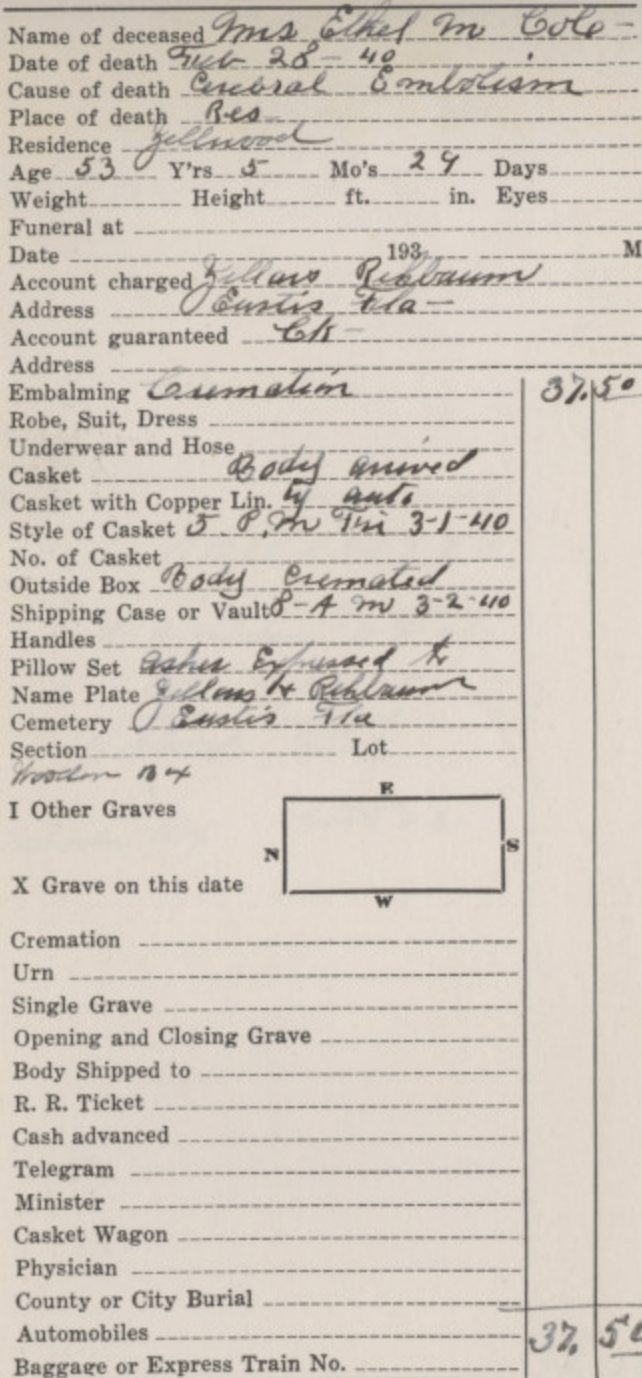 Name of deceased Mrs Ethel M Cole -
Date of death Feb 28 - 40
Cause of death Cerebral Embolism
Place of death Res
Residence Zellwood
Age 53 Y'rs 5 Mo's 29 Days
Weight Height ft. in. Eyes
Funeral at
Date 193 M
Account charged Rehbaum
Address Eustis Fla -
Account guaranteed Ck -
Address
Embalming Cremation 37.50
Robe, Suit, Dress
Underwear and Hose
Casket Body arrived
Casket with Copper Lin. by auto
Style of Casket 5 P.M Fri 3-1-40
No. of Casket
Outside Box Body Cremated
Shipping Case or Vault 8 - A M 3-2-40
Handles
Pillow Set Ashes Expressed to
Name Plate & Rehbaum
Cemetery Eustis Fla
Section Lot
Wooden Bx
I Other Graves
E
N
S
X Grave on this date
W
Cremation
Urn
Single Grave
Opening and Closing Grave
Body Shipped to
R. R. Ticket
Cash advanced
Telegram
Minister
Casket Wagon
Physician
County or City Burial
Automobiles 37. 50
Baggage or Express Train No.